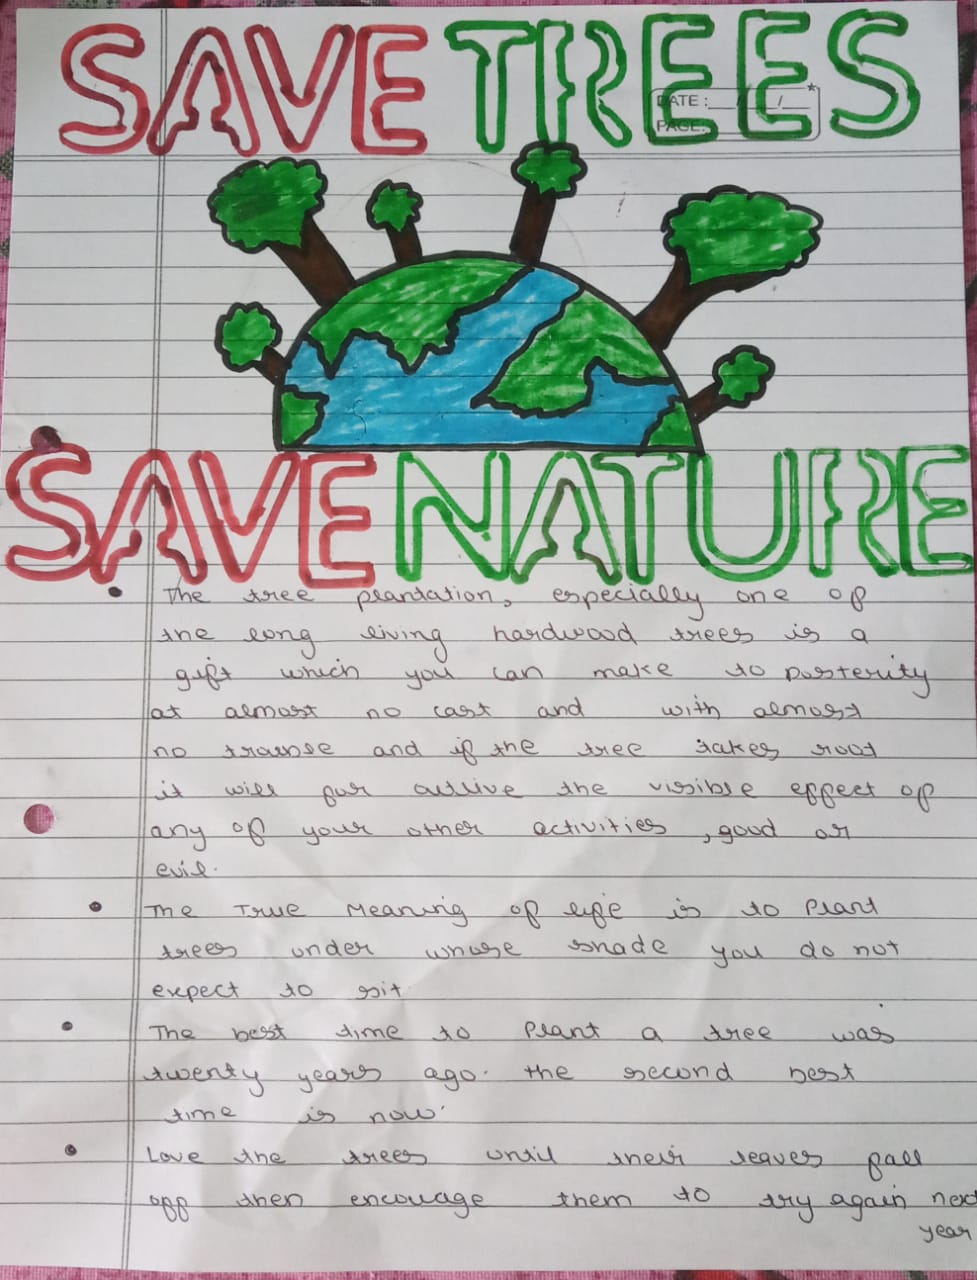 SAVE TREES
DATE: / /
PAGE:
SAVE NATURE
The tree plantation, especially one of
the long living hardwood trees is a
gift which you can make to posterity
at almost no cast and with almost
no trouble and if the tree takes root
it will far outlive the visible effect of
any of your other activities, good or
evil.
The True Meaning of life is to Plant
trees under whose shade you do not
expect to sit
The best time to Plant a tree was
twenty years ago. the second best
time is now.
Love the trees until their leaves fall
off then encouage them to try again next
year